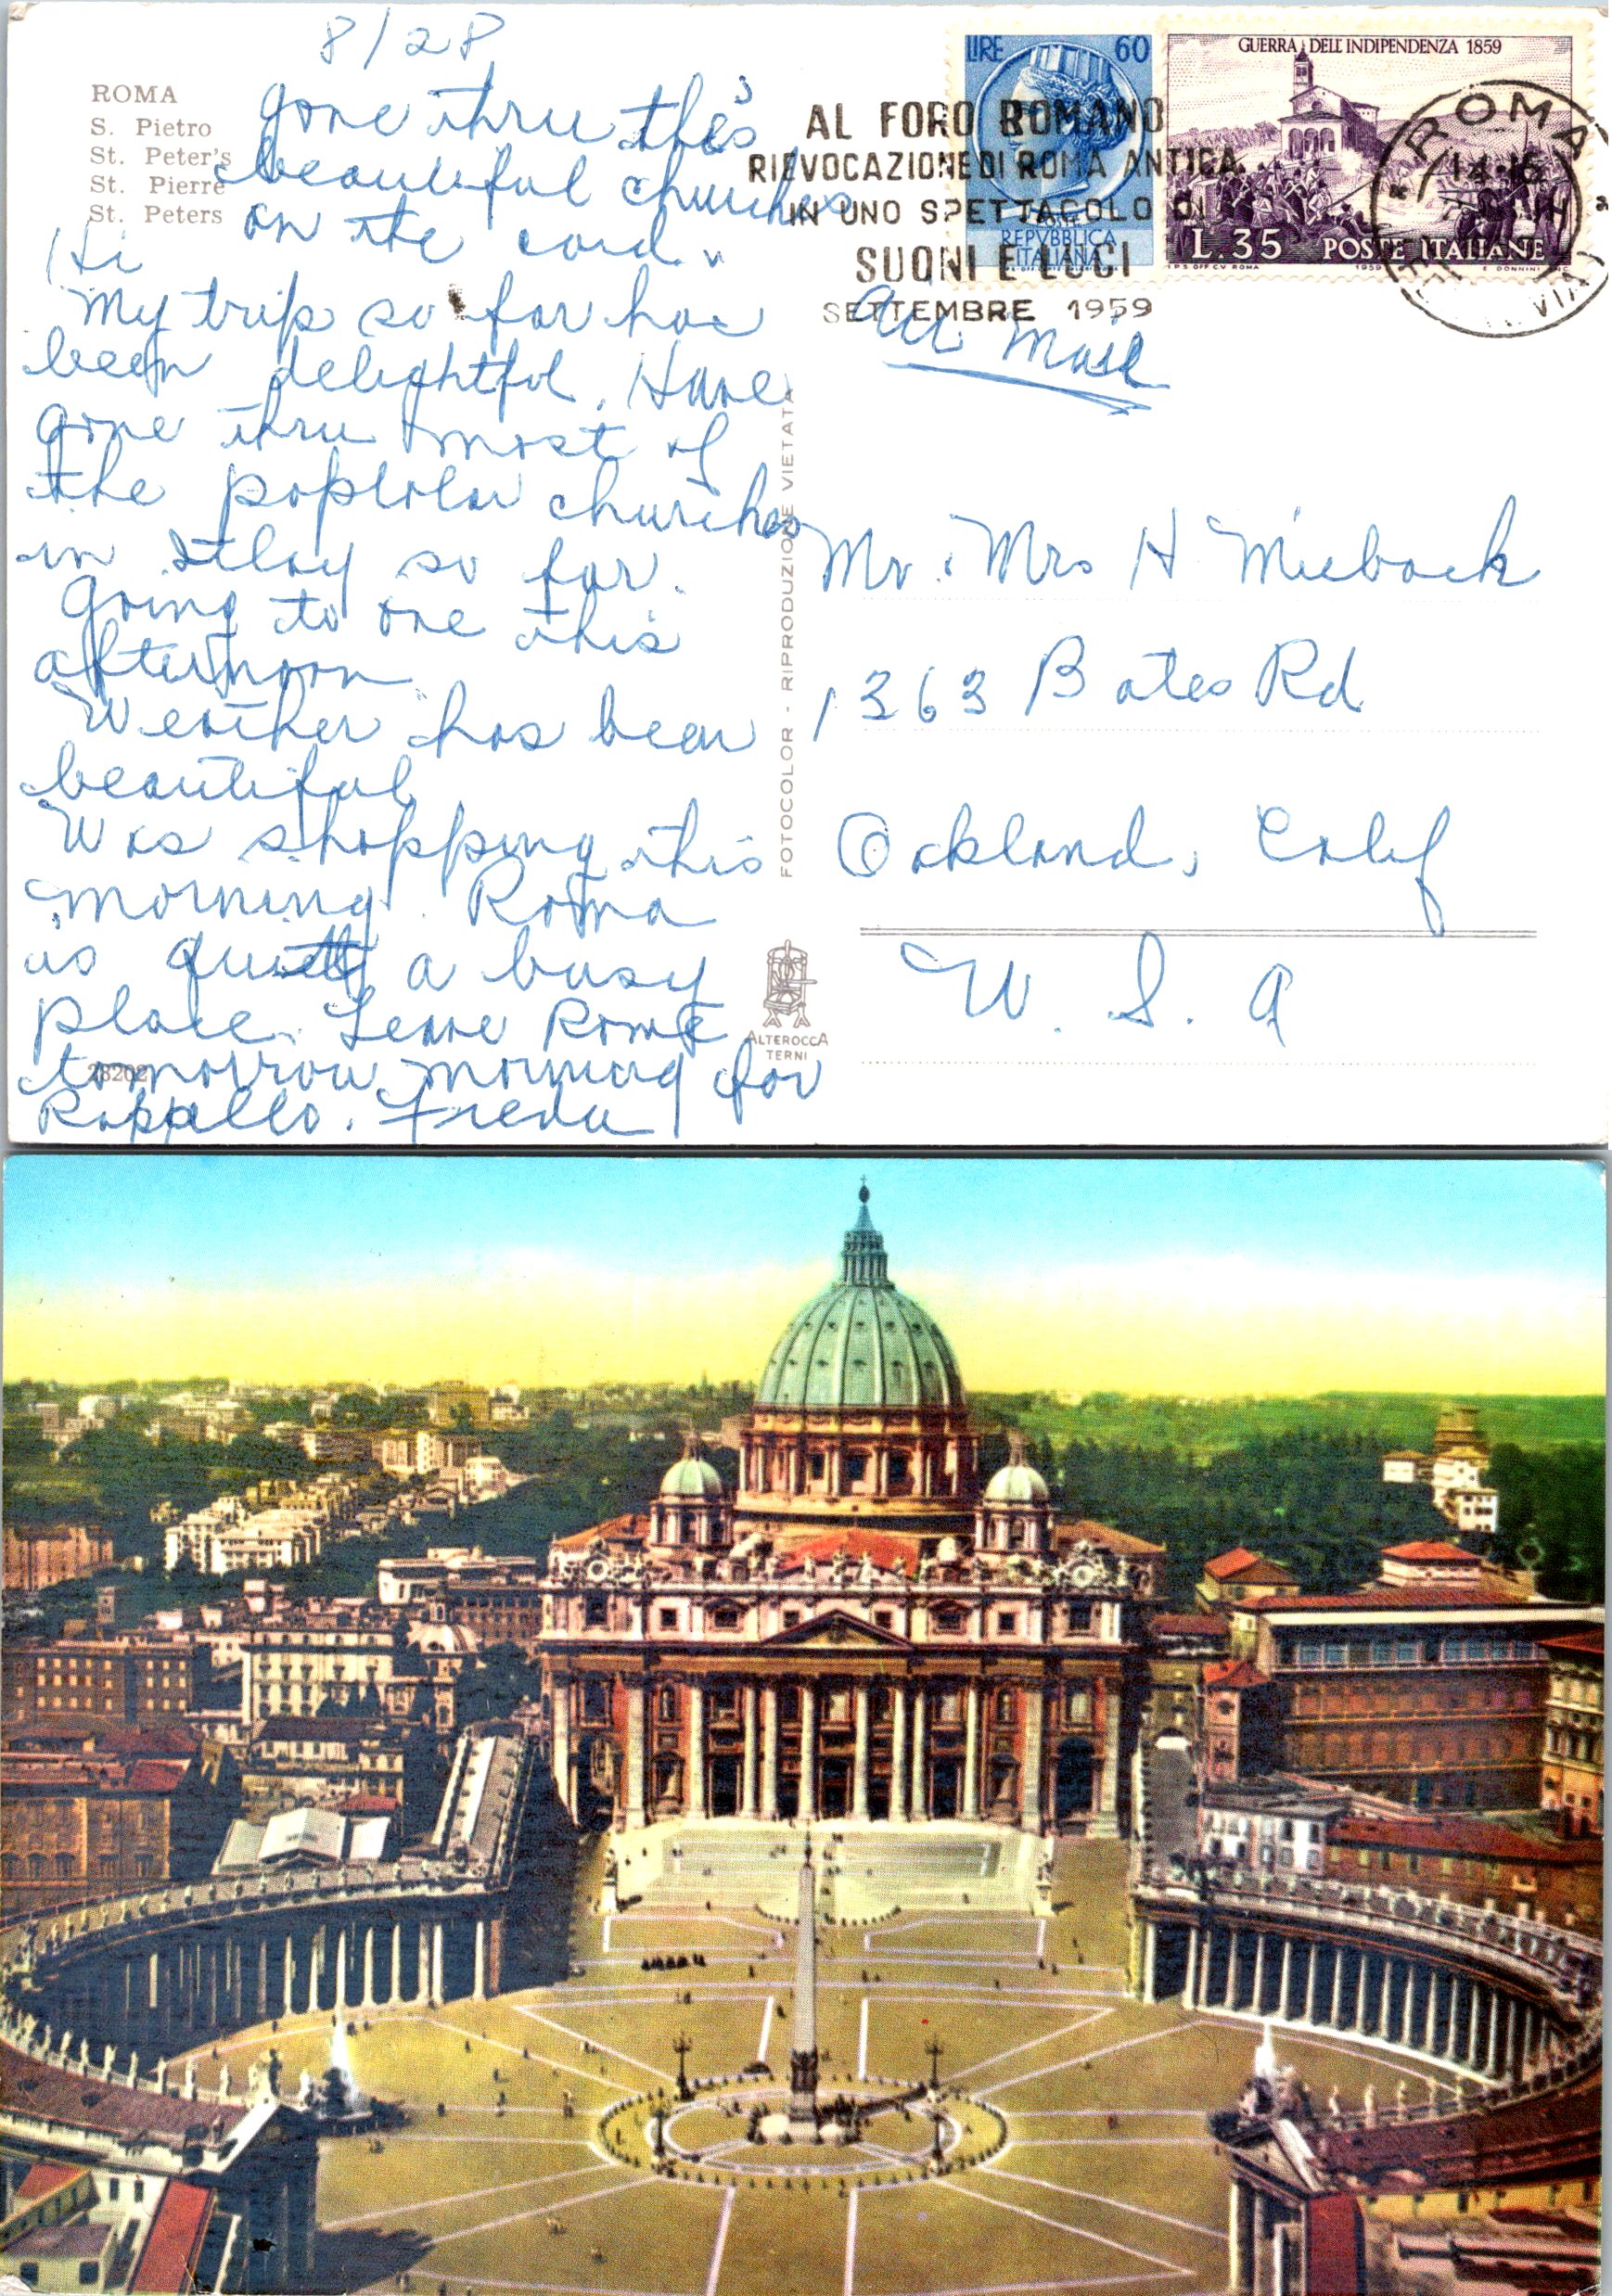 8/28
ROMA
S. Pietro
St. Peter's
St. Pierre
St. Peters
gone thru this
beautiful churches
on the card.
Hi
My trip so far has
been delightful. Have
gone thru most of
the poplolar churches
in Itlay so far.
Going to one this
afternoon.
Weather has been
beautiful
Was shopping this
morning. Roma
is quite a busy
place. Leave Rome
tomorrow morning for
Rappello. Freda
28202
LIRE 60
POSTE
REPVBBLICA
ITALIANA
GUERRA DELL'INDIPENDENZA 1859
L.35 POSTE ITALIANE
I.P.S. OFF. C.V. ROMA 1959 E. DONNINI INC.
AL FORO ROMANO
RIEVOCAZIONE DI ROMA ANTICA
IN UNO SPETTACOLO DI
SUONI E LUCI
SETTEMBRE 1959
ROMA
Air Mail
FOTOCOLOR - RIPRODUZIONE VIETATA
Mr. & Mrs H Mieback
1363 Bates Rd
Oakland, Calif
U. S. A
ALTEROCCA
TERNI